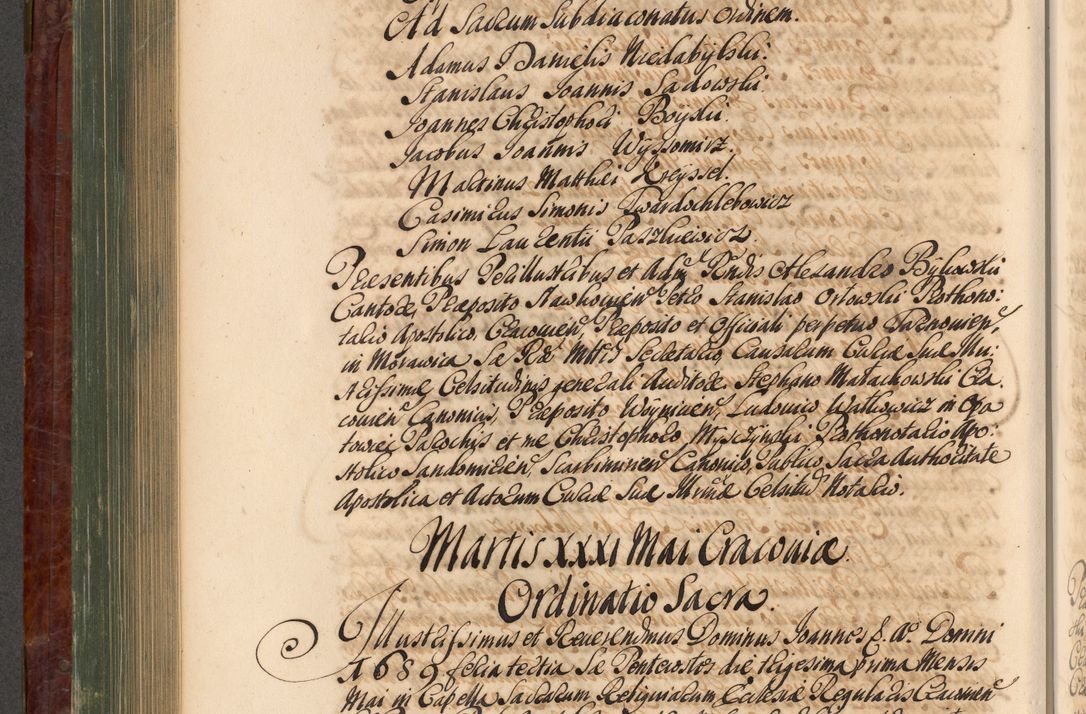 Ad Sacrum Subdiaconatus Ordinem.
Adamus Danielis Niedabylski.
Stanislaus Joannis Sadowski
Joannes Christophori Boyski.
Jacobus Joannis Wyssomirz.
Martinus Matthæi Kreyssel.
Casimirus Simonis Twardochlebowicz
Simon Laurentii Paszkiewicz.
Præsentibus Perillustribus et Adm Rndis Alexandro Bykowski
Cantore, Præposito Slawkowien Petro Stanislao Orlowski Prothono:
tario Apostolico, Cracovien, Præposito et Officiali perpetuo Tarnovien,
in Morawica Sæ Ræ Mttis Secretario, Causarum Curiæ Suæ Illu:
strissimæ Celsitudinis generali Auditore Stephano Malachowski Cra
covien Canonicis, Præposito Woynicien, Ludovico Watkowicz in
Parochis et me Christophoro Myszynski Prothonotario Apo:
stolico Sandomirien, Scarbimirien Canonico, Publico, Sacra Authoritate
Apostolica et Actorum Curiæ Suæ Illmæ Celsitud Notario.
Martis XXXI Mai Cracoviæ.
Ordinatio Sacra.
Illustrissimus et Reverendmus Dominus Joannes Ao Domini
1689 feria tertia Pentecostes die trigesima prima Mensis
Mai in Capella Sacrarum Reliquiarum Ecclesiæ Regularis Cracovien